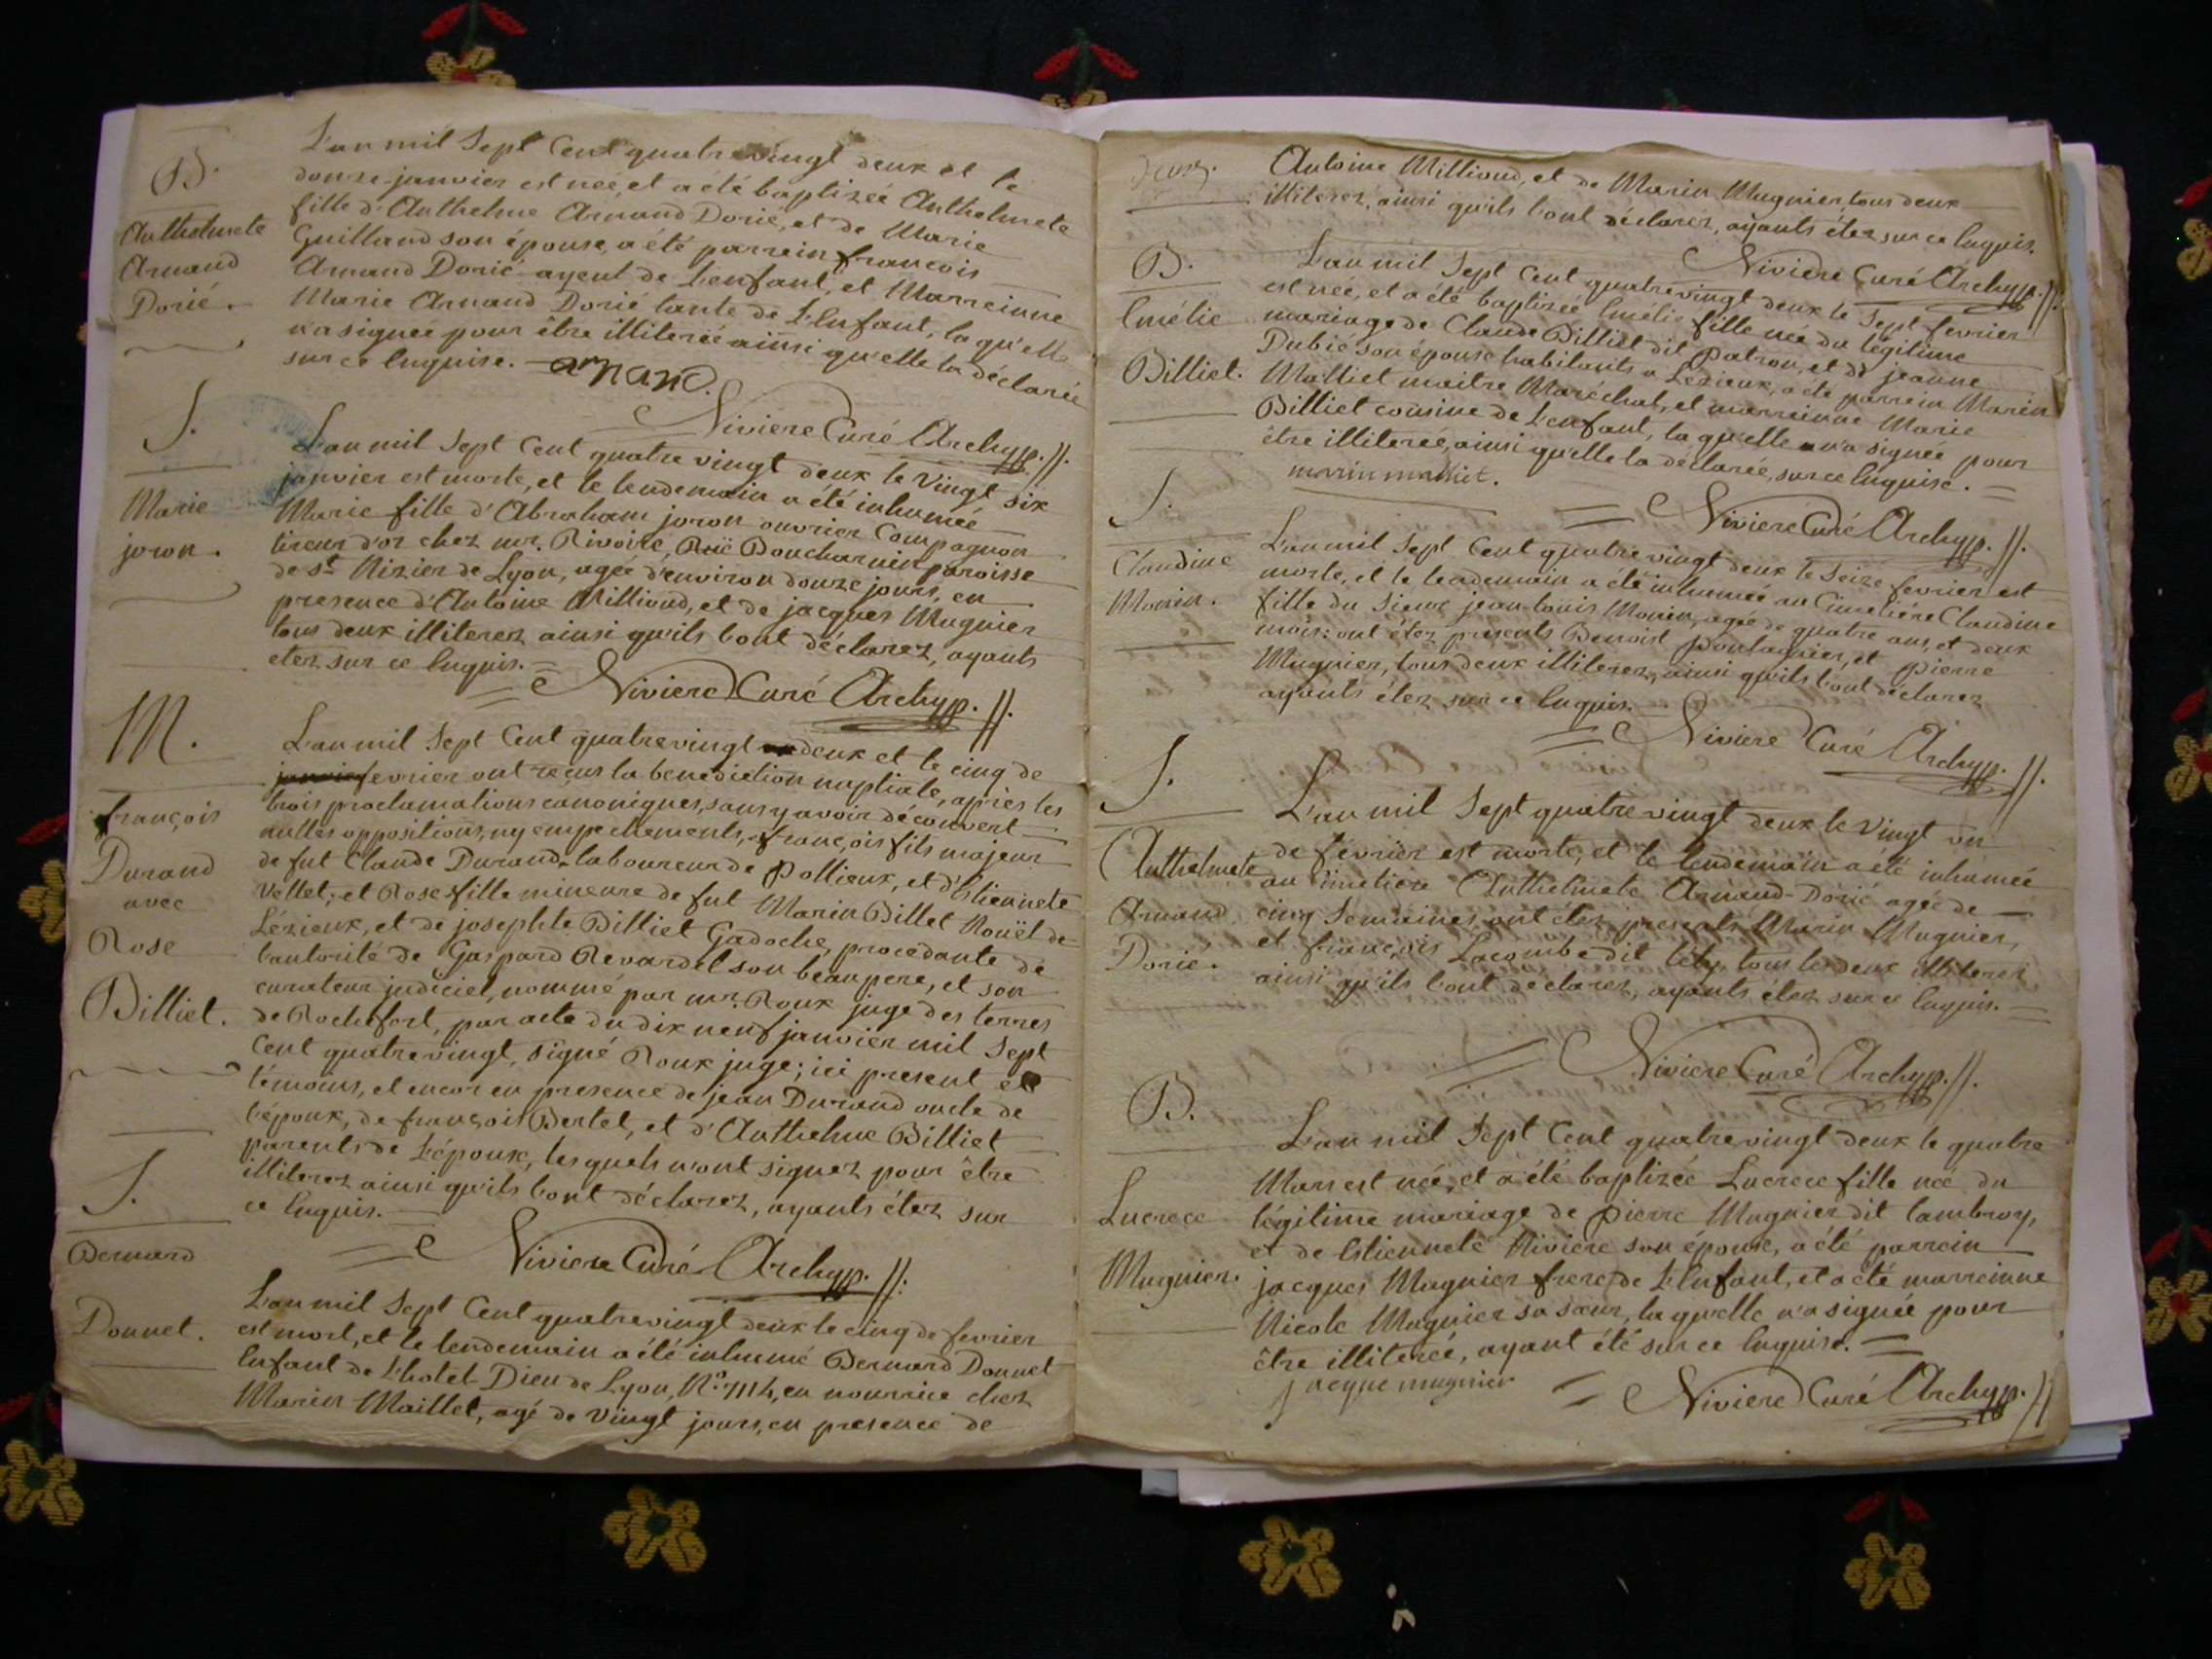 B.
Anthelmete
Arnand
Dorié.
L'an mil Sept Cent quatre vingt deux et le
douze janvier est neé, et a été baptizeé Anthelmete
fille d'Anthelme Arnand Dorié, et de Marie
Guilland son épouse, a été parrein françois
Arnand Dorié ayeul de l'enfant, et Marreinne
Marie Arnand Dorié tante de L'Enfant, la qu'elle
n'a signeé pour être illitereé ainsi qu'elle la déclareé
sur ce Enquise. arnand.
Niviere Curé Archyp. //.
S.
Marie
joron.
L'an mil Sept Cent quatre vingt deux le Vingt six
janvier est morte, et le lendemain a été inhumeé
Marie fille d'Abraham joron ouvrier Compagnon
tireur d'or chez mr. Rivoire, Ruë Boucharnin paroisse
de st. Nizier de Lyon, ageé d'environ douze jours, en
presence d'Antoine Milliand, et de jacques Mugnier
tous deux illiterez ainsi qu'ils l'ont déclarez, ayants
etez sur ce Enquis. =
= Niviere Curé Archyp. //.
M.
françois
Durand
avec
Rose
Billiet.
L'an mil Sept Cent quatrevingt deux et le cinq de
fevrier ont reçus la benediction nuptiale, après les
trois proclamations canoniques, sans y avoir découvert
nulles oppositions, ny empechements, françois fils majeur
de fut Claude Durand laboureur de Pollieux, et d'Etiennete
Vellet; et Rose fille mineure de fut Marin Billet Nouël de
Lézieux, et de josephte Billiet Gadoche, procedante de
l'autorité de Gaspard Revardel son beaupere, et son
curateur judiciel, nommé par mr. Roux juge des terres
de Rochefort, par acte du dix neuf janvier mil Sept
Cent quatrevingt, signé Roux juge; ici present et
témoins, et encor en presence de jean Durand oncle de
l'époux, de françois Bertet, et d'Anthelme Billiet
parents de L'épouse, les quels n'ont signez pour être
illiterez ainsi qu'ils l'ont déclarez, ayants étez sur
ce Enquis.
= Niviere Curé Archyp. //.
S.
Bernard
Donnet.
L'an mil Sept Cent quatrevingt deux le cinq de fevrier
est mort, et le lendemain a été inhumé Bernard Donnet
Enfant de L'hotel Dieu de Lyon, N°. en nourrice chez
Marin Maillet, agé de Vingt jours, en presence de
Antoine Milliand, et de Marin Mugnier, tous deux
illiterez, ainsi qu'ils l'ont déclarez, ayants étez sur ce Enquis.
Niviere Curé Archyp. //.
B.
Emélie
Billiet.
L'an mil Sept Cent quatrevingt deux le Sept fevrier
est neé, et a été baptizeé Emélie fille neé du légitime
mariage de Claude Billiet dit Patron, et de jeanne
Dubié son épouse habitants a Lézieux, a été parrein Marin
Malliet maitre Maréchal, et marreinne Marie
Billiet cousine de L'enfant, la qu'elle n'a signeé pour
être illitereé, ainsi qu'elle la déclareé, sur ce Enquise. =
marin malliet.
= Niviere Curé Archyp. //.
S.
Claudine
Monin.
L'an mil Sept Cent quatre vingt deux le Seize fevrier est
morte, et le lendemain a été inhumeé au Cimetiére Claudine
fille du Sieur jean-louis Monin, ageé de quatre ans, et deux
mois: ont étez presents Benoist Pontagnier, et Pierre
Mugnier, tous deux illiterez, ainsi qu'ils l'ont déclarez
ayants étez sur ce Enquis.
= Niviere Curé Archyp. //.
S.
Anthelmete
Arnand
Dorié.
L'an mil Sept quatre vingt deux le Vingt un
de fevrier est morte, et le lendemain a été inhumeé
au Cimetiere Anthelmete Arnand-Dorié ageé de
cinq Semaines, ont étez presents Marin Mugnier,
et françois Lacombe dit tous les deux illiterez
ainsi qu'ils l'ont declarez, ayants étez sur ce Enquis. =
= Niviere Curé Archyp. //.
B.
Lucrece
Mugnier.
L'an mil Sept Cent quatrevingt deux le quatre
Mars est neé, et a été baptizeé Lucrece fille neé du
légitime mariage de Pierre Mugnier dit Cambroy,
et de Etiennete Niviere son épouse, a été parrein
jacques Mugnier frere de L'Enfant, et a été marreinne
Nicole Mugnier sa sœur, la qu'elle n'a signeé pour
être illitereé, ayant été sur ce Enquise. =
jacque mugnier
= Niviere Curé Archyp. //